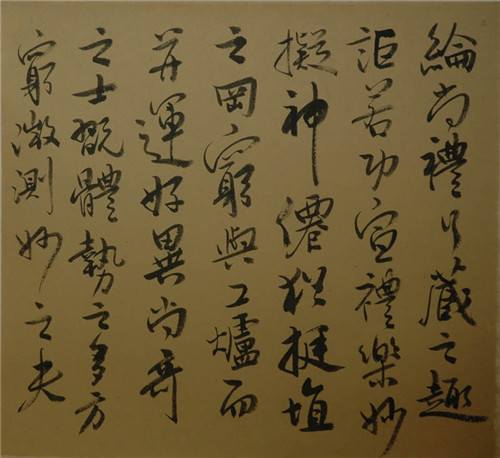 綸尚禮行藏之趣
詎若功宣禮樂妙
擬神僊猶挺埴
之罔窮與工爐而
并運好異尚奇
之士翫體勢之多方
窮微測妙之夫